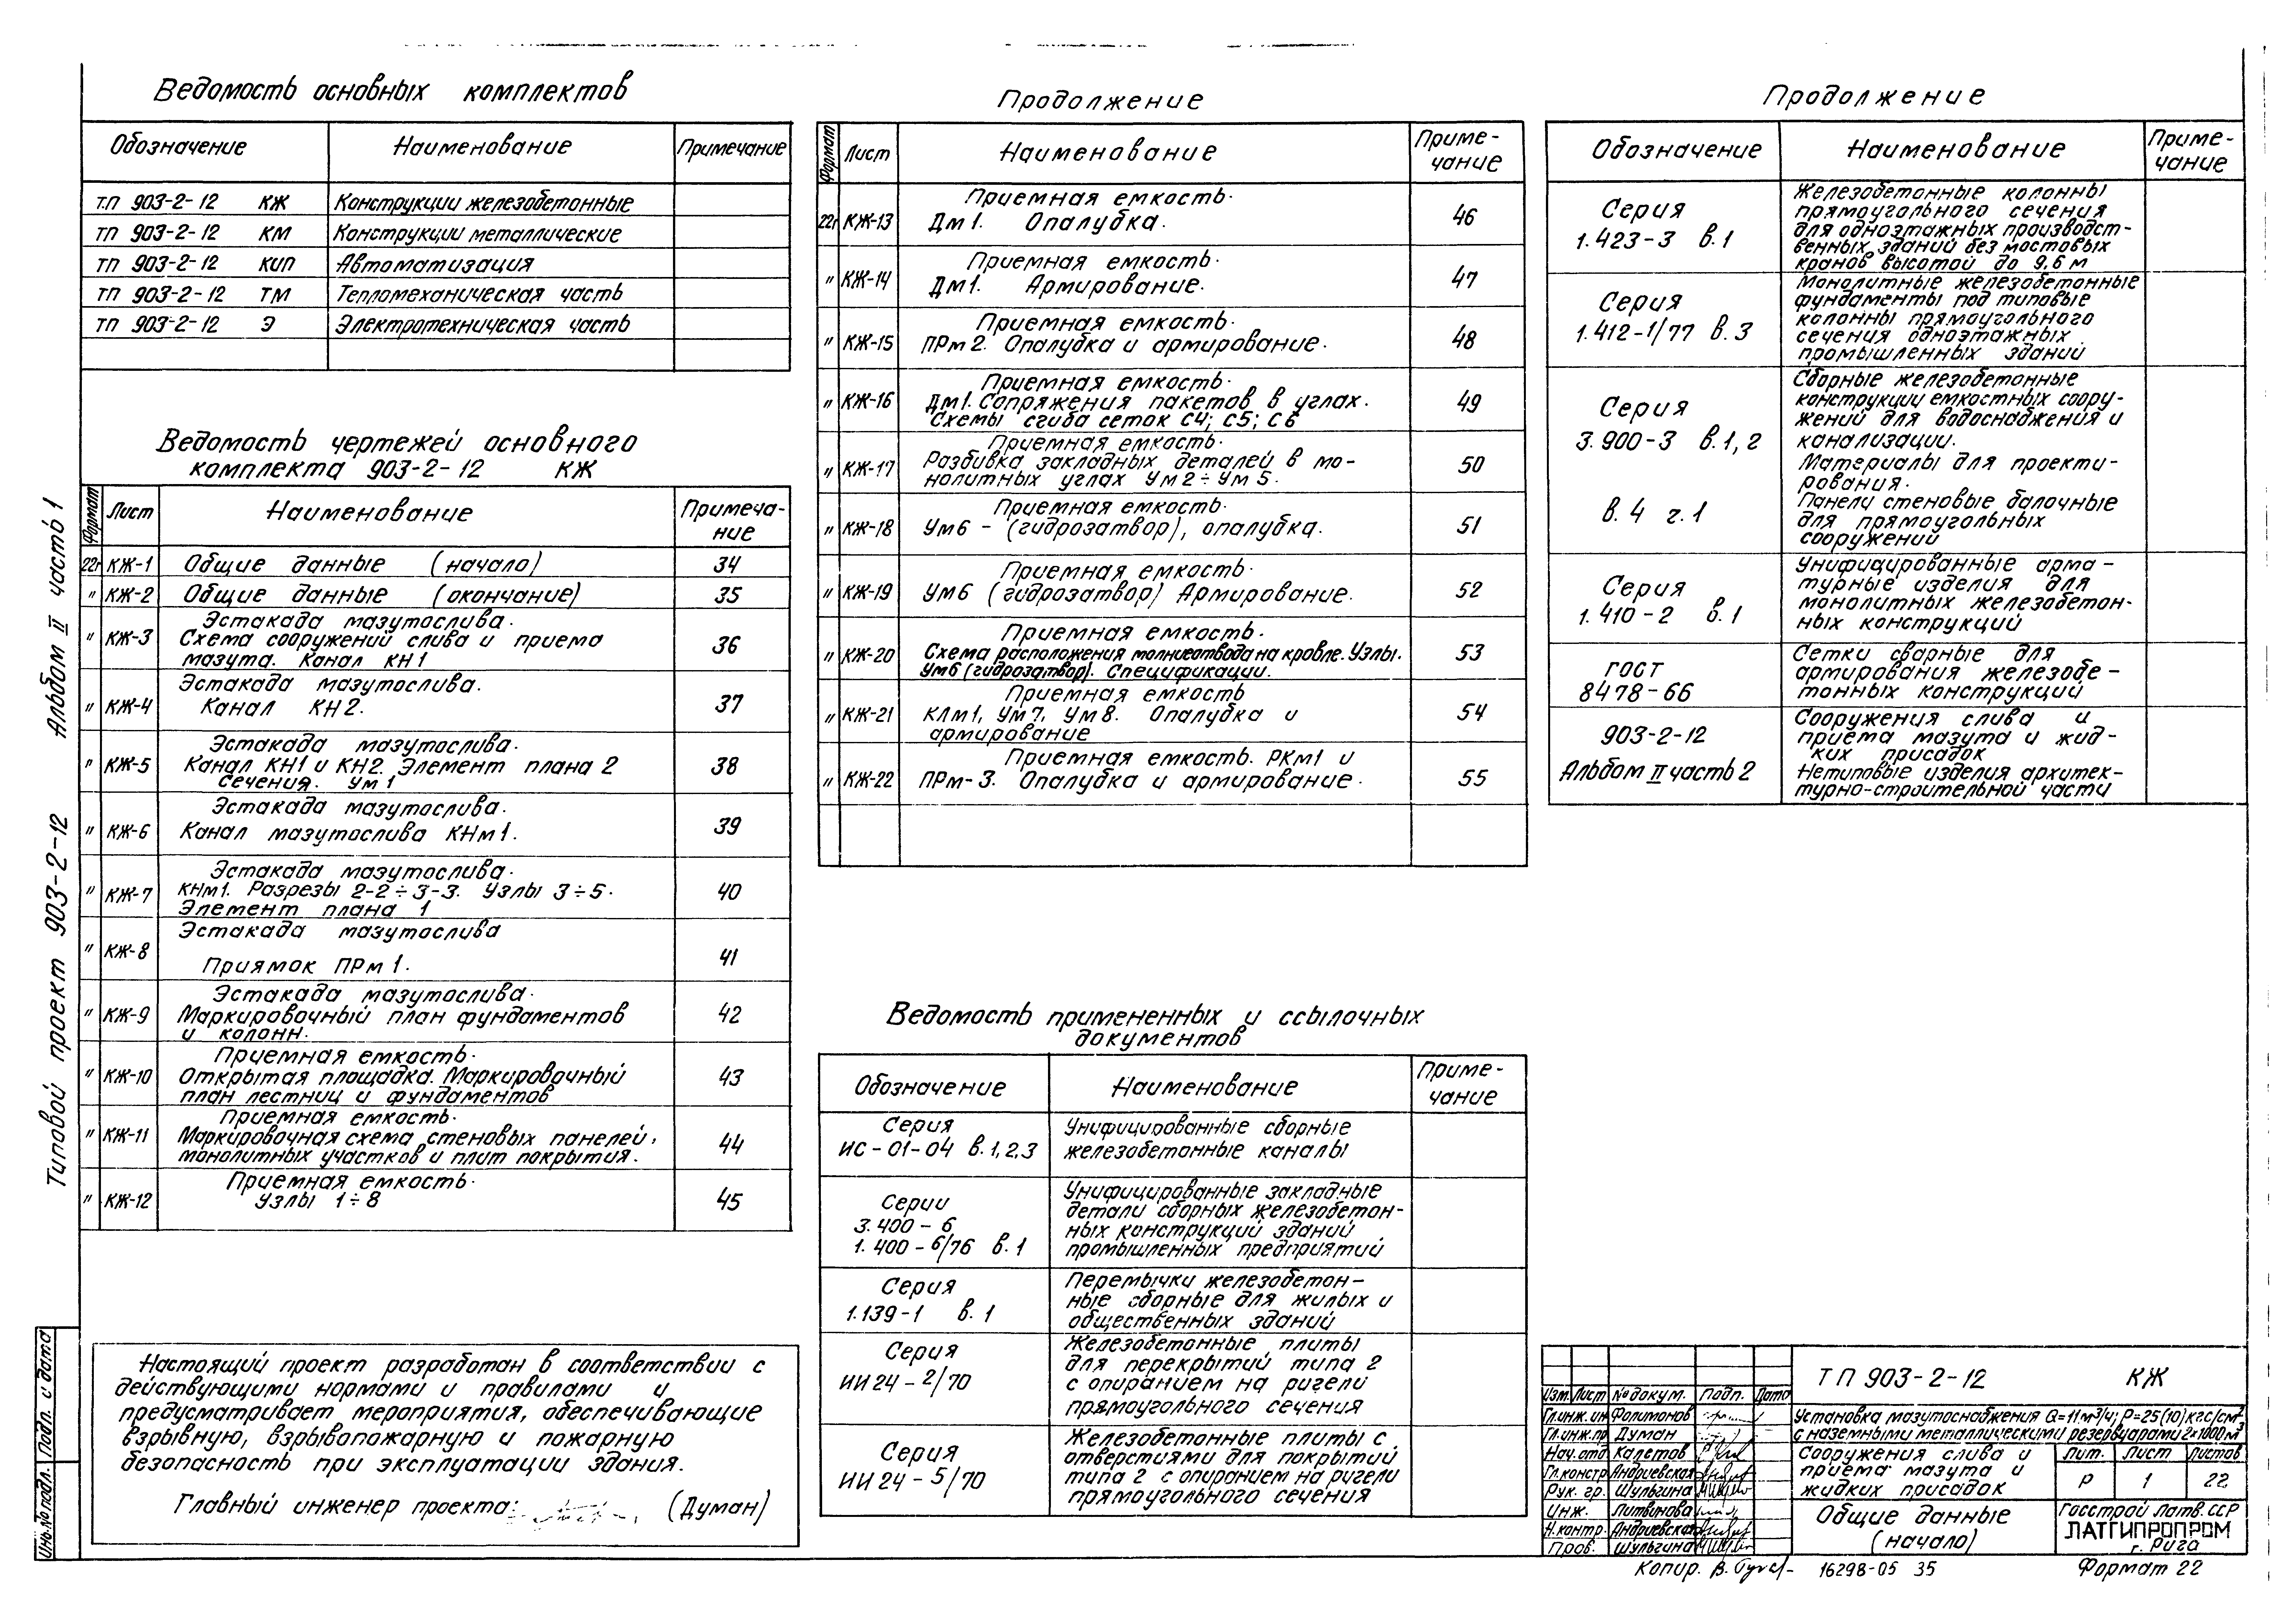 Ведомость основных комплектов
Обозначение Наименование Примечание
Т.П 903-2-12 КЖ Конструкции железобетонные
ТП 903-2-12 КМ Конструкции металлические
ТП 903-2-12 КИП Автоматизация
ТП 903-2-12 ТМ Тепломеханическая часть
ТП 903-2-12 Э Электротехническая часть
Ведомость чертежей основного
комплекта 903-2-12 КЖ
Формат Лист Наименование Примеча-
ние
22г КЖ-1 Общие данные (начало) 34
" КЖ-2 Общие данные (окончание) 35
Эстакада мазутослива.
" КЖ-3 Схема сооружений слива и приема 36
мазута. Канал КН1
Эстакада мазутослива.
" КЖ-4 Канал КН2. 37
Эстакада мазутослива.
" КЖ-5 Канал КН1 и КН2. Элемент плана 2 38
Сечения. Ум1
Эстакада мазутослива.
" КЖ-6 Канал мазутослива КНм1. 39
Эстакада мазутослива.
" КЖ-7 КНм1. Разрезы 2-2÷3-3. Узлы 3÷5. 40
Элемент плана 1
Эстакада мазутослива
" КЖ-8 Приямок ПРм1. 41
Эстакада мазутослива.
" КЖ-9 Маркировочный план фундаментов 42
и колонн.
Приемная емкость.
" КЖ-10 Открытая площадка. Маркировочный 43
план лестниц и фундаментов
Приемная емкость.
" КЖ-11 Маркировочная схема стеновых панелей, 44
монолитных участков и плит покрытия.
Приемная емкость.
" КЖ-12 Узлы 1÷8 45
Настоящий проект разработан в соответствии с
действующими нормами и правилами и
предусматривает мероприятия, обеспечивающие
взрывную, взрывопожарную и пожарную
безопасность при эксплуатации здания.
Главный инженер проекта: (Думан)
Типовой проект 903-2-12 Альбом II часть 1
Инв.№ подл. Подп. и дата
Продолжение
Формат Лист Наименование Приме-
чание
Приемная емкость.
22г КЖ-13 Дм1. Опалубка. 46
Приемная емкость.
" КЖ-14 Дм1. Армирование. 47
Приемная емкость.
" КЖ-15 ПРм2. Опалубка и армирование. 48
Приемная емкость.
" КЖ-16 Дм1. Сопряжения пакетов в углах. 49
Схемы сгиба сеток С4; С5; С6
Приемная емкость.
" КЖ-17 Разбивка закладных деталей в мо- 50
нолитных углах Ум2÷Ум5.
Приемная емкость.
" КЖ-18 Ум6 - (гидрозатвор), опалубка. 51
Приемная емкость.
" КЖ-19 Ум6 (гидрозатвор) Армирование. 52
Приемная емкость.
" КЖ-20 Схема расположения молниеотвода на кровле. Узлы. 53
Ум6 (гидрозатвор). Спецификации.
Приемная емкость
" КЖ-21 КЛм1, Ум7, Ум8. Опалубка и 54
армирование
Приемная емкость. РКм1 и
" КЖ-22 ПРм-3. Опалубка и армирование. 55
Ведомость примененных и ссылочных
документов
Обозначение Наименование Приме-
чание
Серия Унифицированные сборные
ИС-01-04 в.1,2,3 железобетонные каналы
Серии Унифицированные закладные
3.400-6 детали сборных железобетон-
1.400-6/76 в.1 ных конструкций зданий
промышленных предприятий
Серия Перемычки железобетон-
1.139-1 в.1 ные сборные для жилых и
общественных зданий
Серия Железобетонные плиты
ИИ24-2/70 для перекрытий типа 2
с опиранием на ригели
прямоугольного сечения
Серия Железобетонные плиты с
ИИ24-5/70 отверстиями для покрытий
типа 2 с опиранием на ригели
прямоугольного сечения
Продолжение
Обозначение Наименование Приме-
чание
Серия Железобетонные колонны
1.423-3 в.1 прямоугольного сечения
для одноэтажных производст-
венных зданий без мостовых
кранов высотой до 9,6 м
Серия Монолитные железобетонные
1.412-1/77 в.3 фундаменты под типовые
колонны прямоугольного
сечения одноэтажных
промышленных зданий
Серия Сборные железобетонные
3.900-3 в.1,2 конструкции емкостных соору-
жений для водоснабжения и
канализации.
Материалы для проекти-
рования.
в.4 ч.1 Панели стеновые балочные
для прямоугольных
сооружений
Серия Унифицированные арма-
1.410-2 в.1 турные изделия для
монолитных железобетон-
ных конструкций
ГОСТ Сетки сварные для
8478-66 армирования железобе-
тонных конструкций
903-2-12 Сооружения слива и
приема мазута и жид-
ких присадок
Альбом II часть 2 Нетиповые изделия архитек-
турно-строительной части
ТП 903-2-12 КЖ
Изм. Лист № докум. Подп. Дата
Гл.инж.ин Фолимонов
Гл.инж.пр Думан
Нач.отд Калетов
Гл.констр Андриевская
Рук. гр. Шульгина
Инж. Литвинова
Н.контр. Андриевская
Пров. Шульгина
Установка мазутоснабжения Q=11м³/ч; Р=25(10)кгс/см²
с наземными металлическими резервуарами 2×1000м³
Сооружения слива и
приема мазута и
жидких присадок
Лит. Лист Листов
Р 1 22
Общие данные
(начало)
Госстрой Латв.ССР
ЛАТГИПРОПРОМ
г. Рига
Копир. 16298-05 35 Формат 22